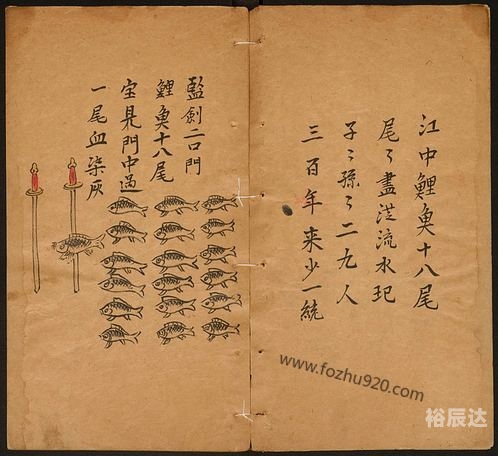 江中鯉魚十八尾
尾々盡泛流水玘
子々孫々二九人
三百年来少一統
監劍二口門
鯉魚十八尾
宝見門中過
一尾血染灰
www.fozhu920.com
裕辰达